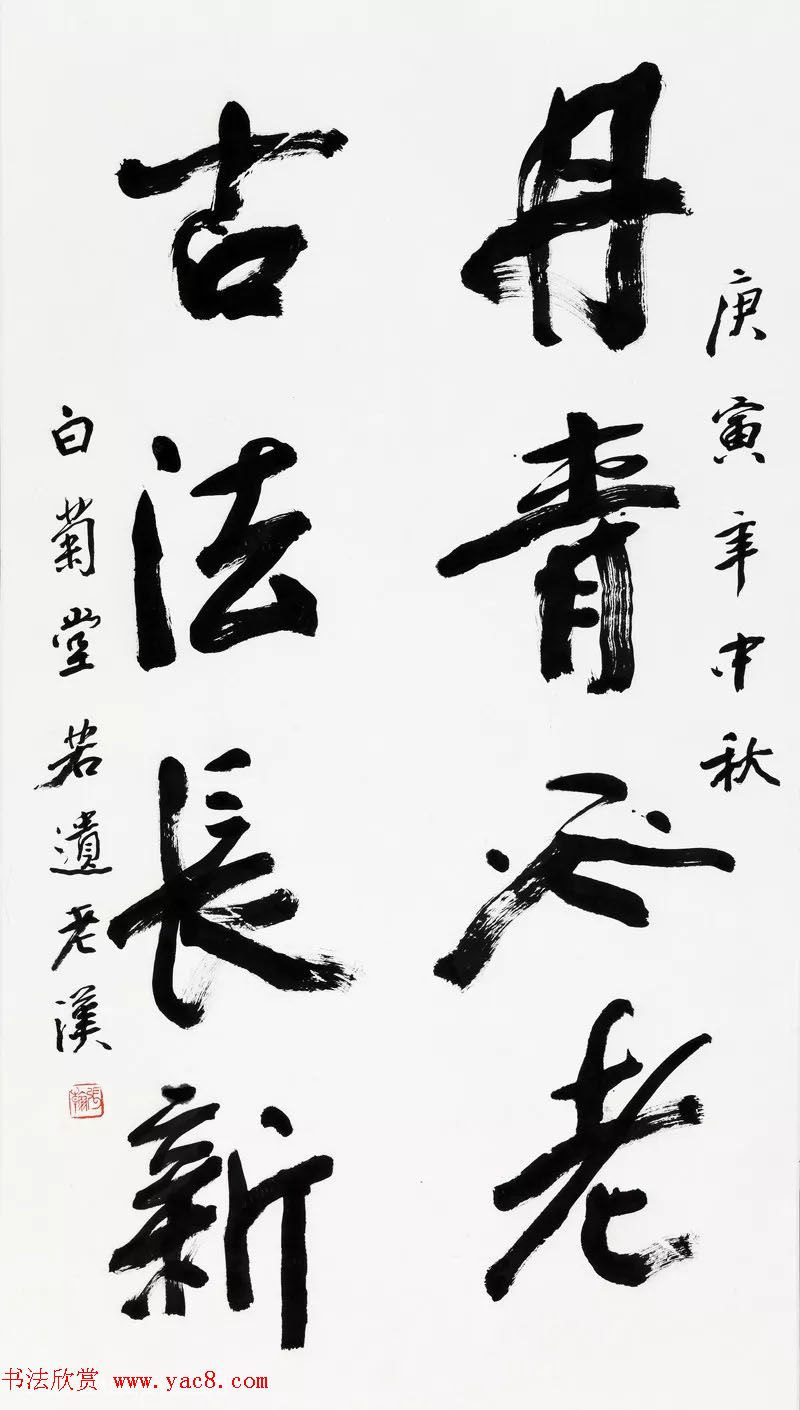 庚寅年中秋
丹青不老
古法長新
白菊堂若遺老漢
張翰
书法欣赏 www.yac8.com